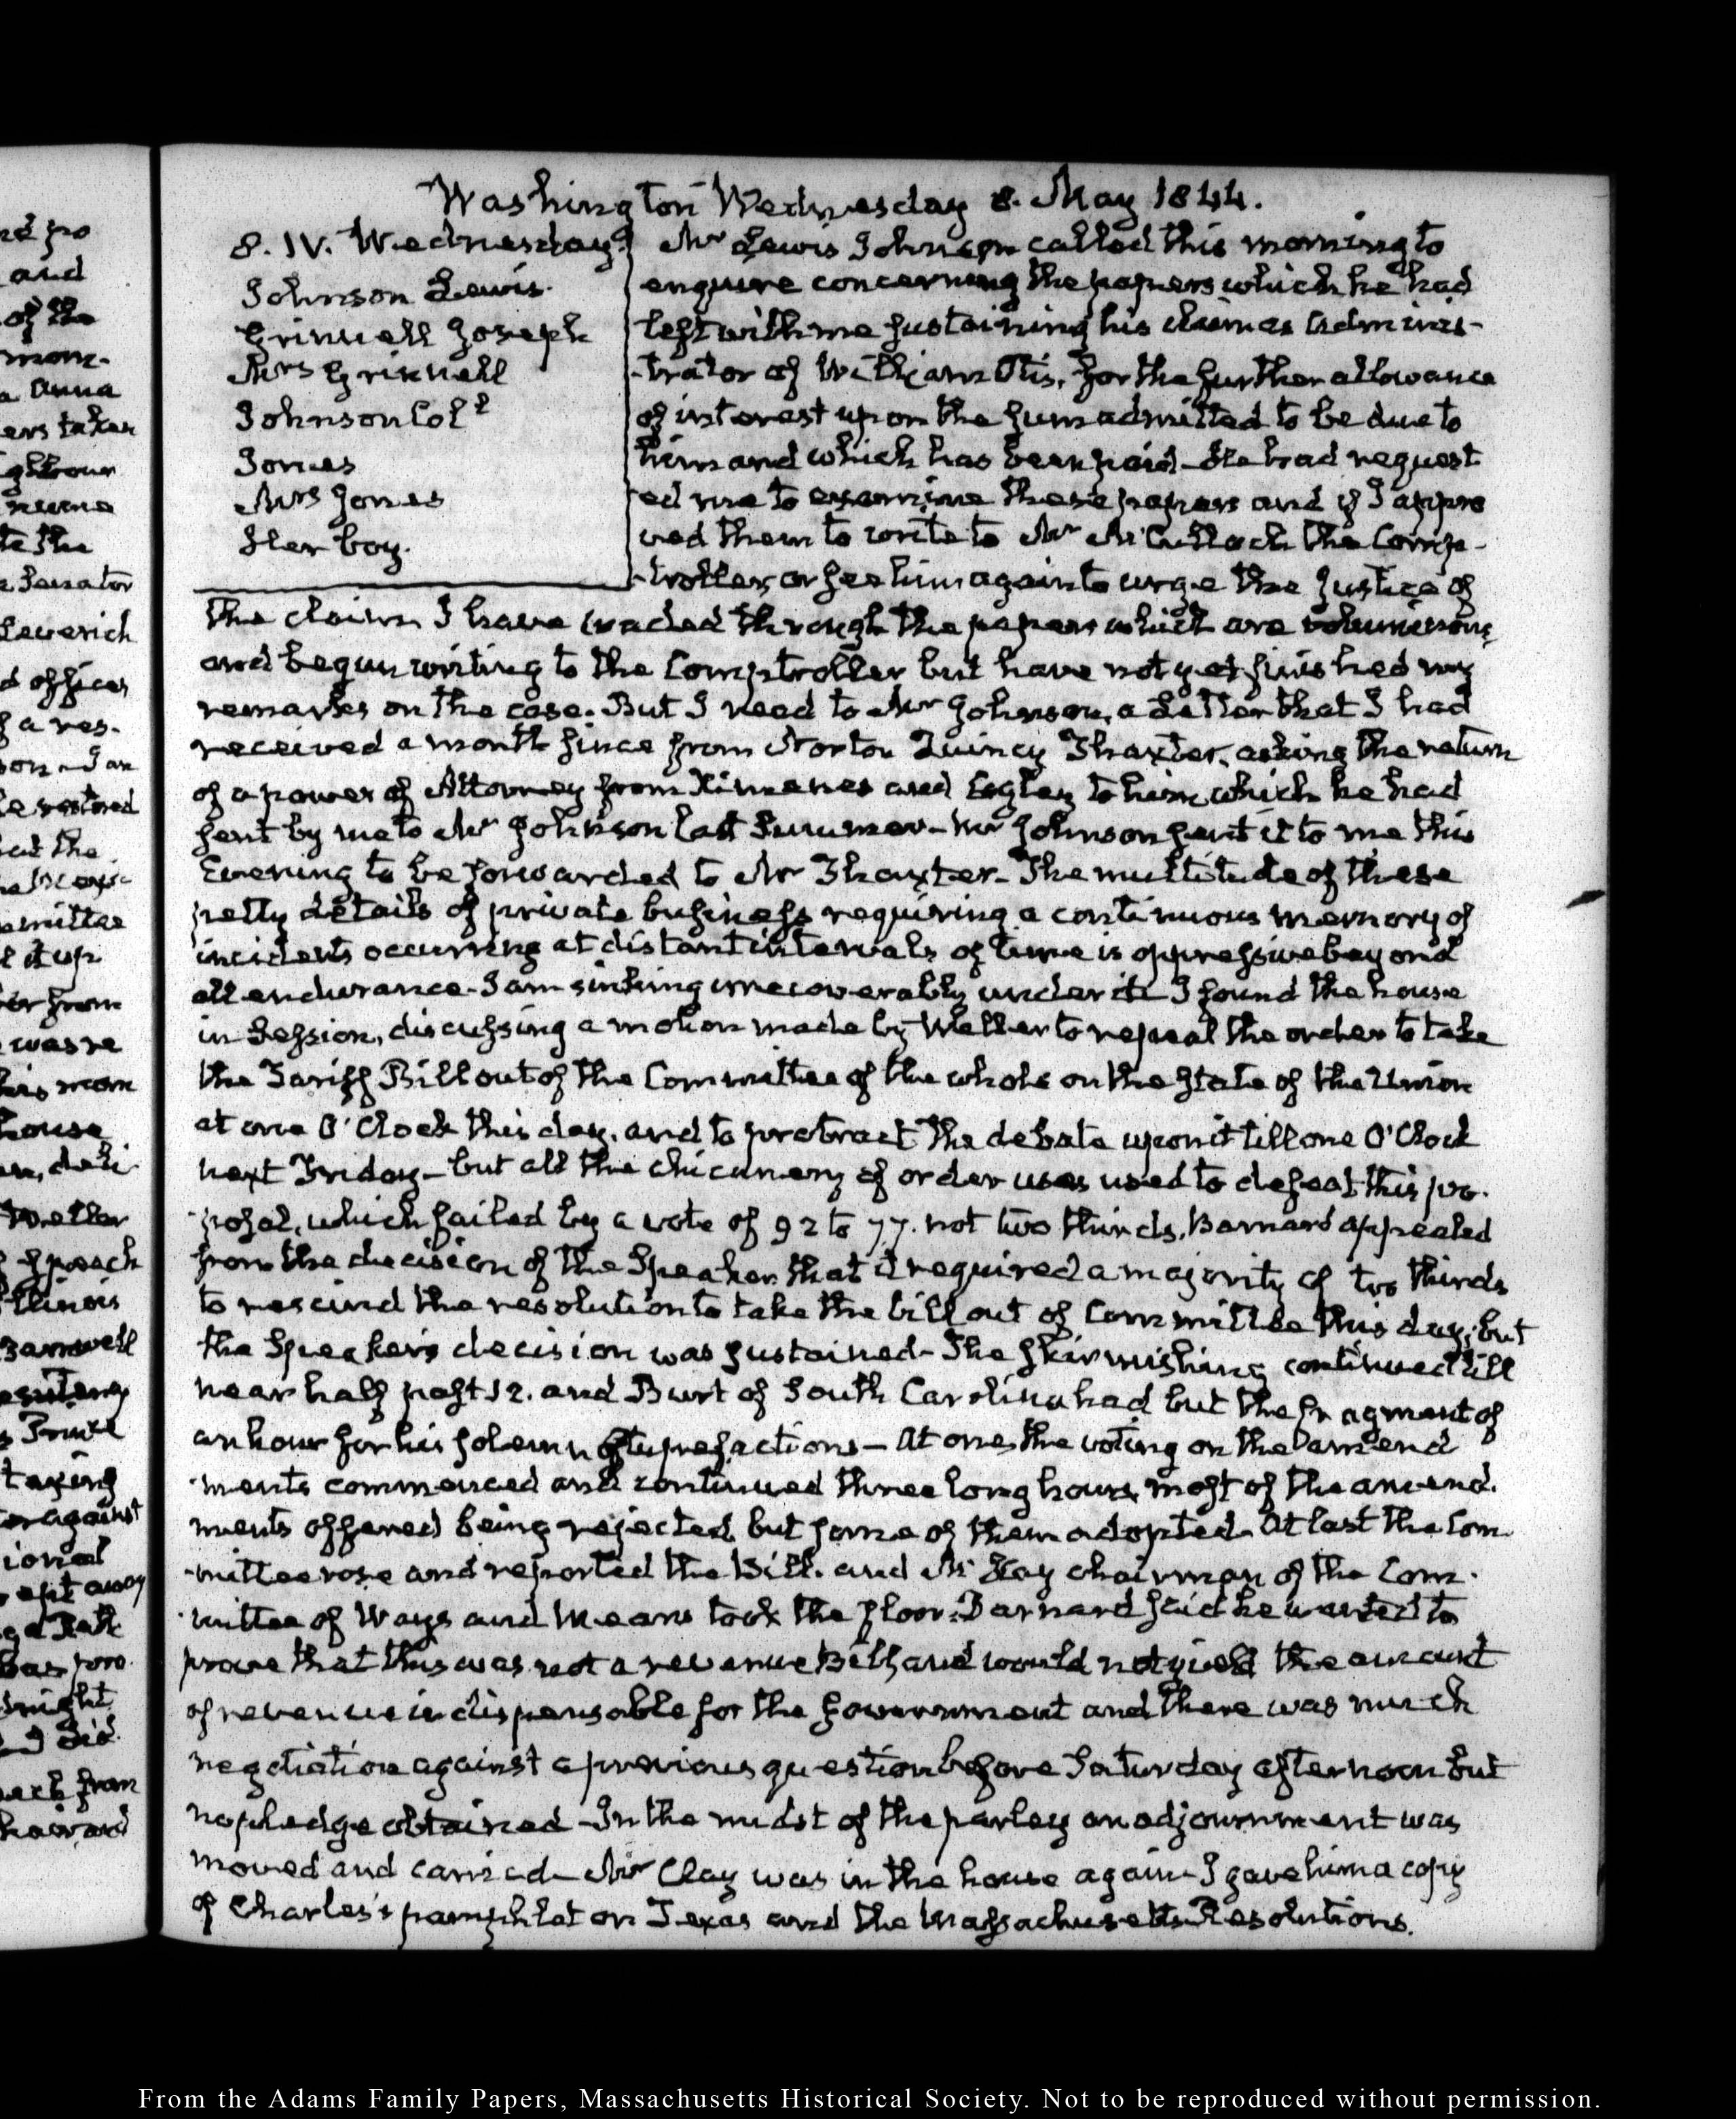 Washington Wednesday 8. May 1844.
8. IV. Wednesday.
Johnson Lewis.
Grinnell Joseph
Mrs Grinnell
Johnson Colˡ
Jones
Mrs Jones
Her boy.
Mr Lewis Johnson called this morning to
enquire concerning the papers which he had
left with me sustaining his claim as Adminis-
-trator of William Otis, for the further allowance
of interest upon the sum admitted to be due to
him and which has been paid - He had request
ed me to examine these papers and if I appro
ved them to write to Mr McCulloch the Comp-
-troller, or see him again to urge the justice of
the claim. I have waded through the papers which are voluminous,
and begun writing to the Comptroller but have not yet finished my
remarks on the case. But I read to Mr Johnson, a Letter that I had
received a month since from Norton Quincy Thaxter, asking the return
of a power of Attorney from Ximenes and to him which he had
sent by me to Mr Johnson last Summer - Mr Johnson sent it to me this
Evening to be forwarded to Mr Thaxter - The multitude of these
petty details of private business requiring a continuous memory of
incidents occurring at distant intervals of time is oppressive beyond
all endurance - I am sinking irrecoverably under it - I found the house
in Session, discussing a motion made by Weller to repeal the order to take
the Tariff Bill out of the Committee of the whole on the State of the Union
at one O'Clock this day, and to protract the debate upon it till one O'Clock
next Friday - but all the chicanery of order was used to defeat this pro-
-posal, which failed by a vote of 92 to 77. not two thirds. Barnard appealed
from the decision of the Speaker that it required a majority of two thirds
to rescind the resolution to take the bill out of Committee this day; but
the Speaker's decision was sustained - The skirmishing continued till
near half past 12. and Burt of South Carolina had but the fragment of
an hour for his solemn stupefactions - At one the voting on the amend
-ments commenced and continued three long hours, most of the amend-
ments offered being rejected but some of them adopted - At last the Com-
-mittee rose and reported the Bill. and McKay chairman of the Com-
-mittee of Ways and Means took the floor. Barnard said he wanted to
prove that this was not a revenue Bill, and would not yield the amount
of revenue indispensable for the Government and there was much
negotiation against a previous question before Saturday afternoon but
no pledge obtained - In the midst of the parley an adjournment was
moved and carried - Mr Clay was in the house again - I gave him a copy
of Charles's pamphlet on Texas and the Massachusetts Resolutions.
From the Adams Family Papers, Massachusetts Historical Society. Not to be reproduced without permission.